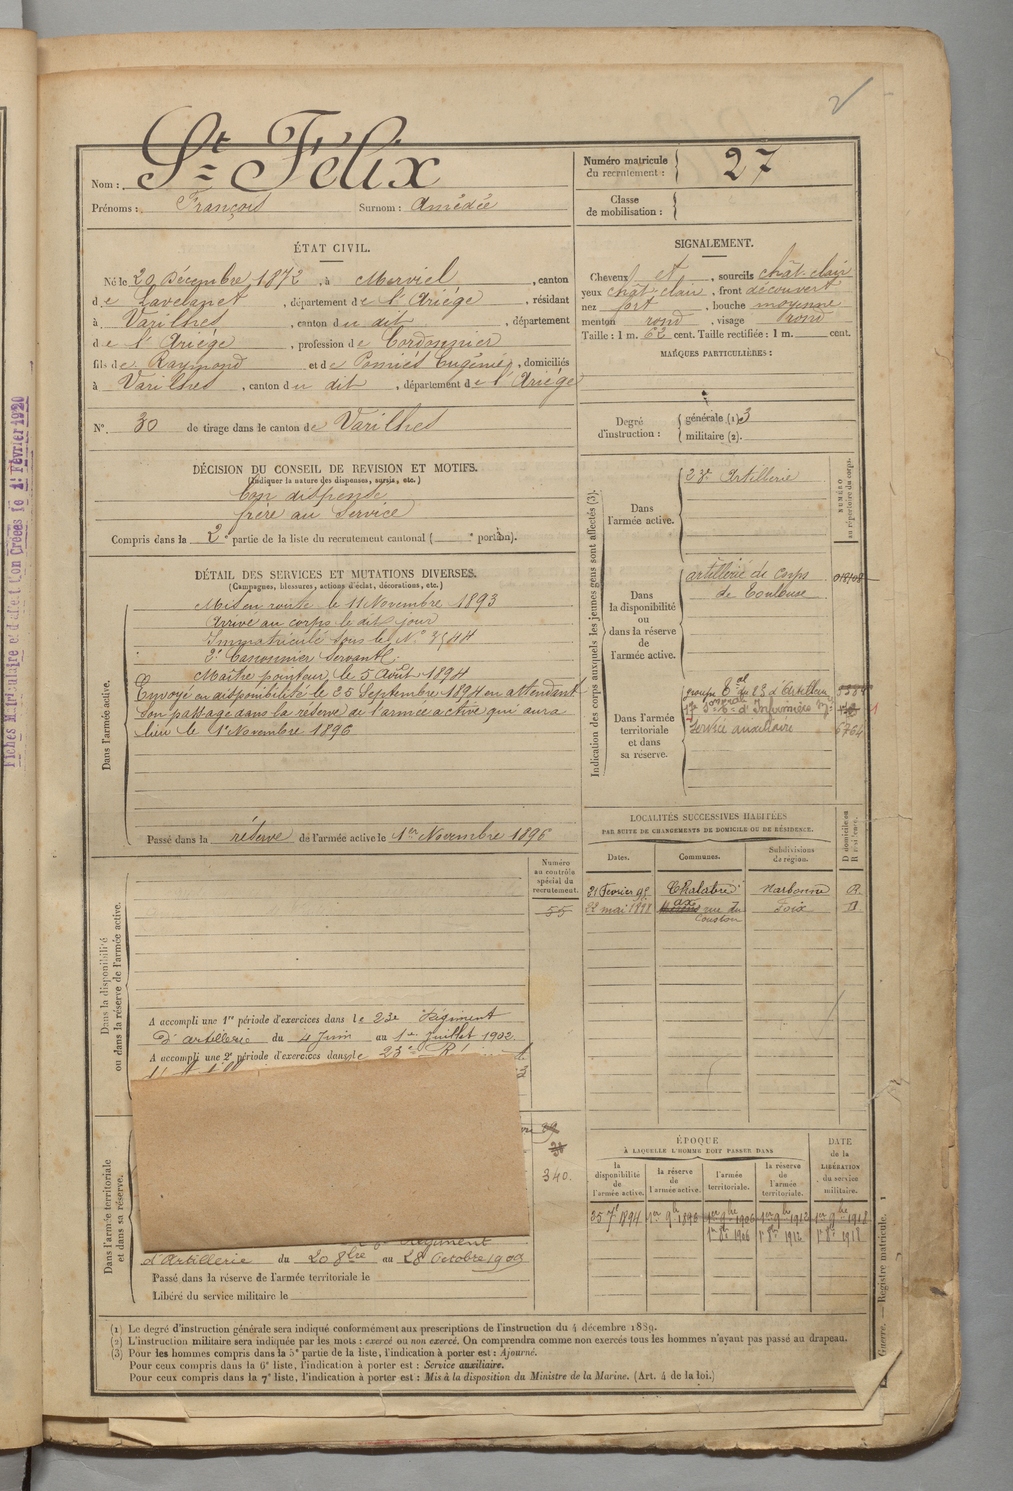 Nom : St Félix
Prénoms : François Surnom : Amédée
Numéro matricule du recrutement : 27
Classe de mobilisation :
ÉTAT CIVIL.
Né le 20 Décembre 1872, à Merviel, canton
de Lavelanet, département de l'Ariége, résidant
à Varilhes, canton du dit, département
de l'Ariége, profession de Cordonnier
fils de Raymond et de Pomiès Eugénie, domiciliés
à Varilhes, canton du dit, département de l'Ariége
N° 30 de tirage dans le canton de Varilhes
SIGNALEMENT.
Cheveux et, sourcils chât. clair
yeux chât clair, front découvert
nez fort, bouche moyenne
menton rond, visage rond
Taille : 1 m. 62 cent. Taille rectifiée : 1 m. cent.
MARQUES PARTICULIÈRES :
Degré d'instruction : générale (1) 3
militaire (2).
DÉCISION DU CONSEIL DE REVISION ET MOTIFS.
(Indiquer la nature des dispenses, sursis, etc.)
Bon dispensé
frère au service
Compris dans la 2e partie de la liste du recrutement cantonal ( e portion).
DÉTAIL DES SERVICES ET MUTATIONS DIVERSES.
(Campagnes, blessures, actions d'éclat, décorations, etc.)
Dans l'armée active.
Mis en route le 11 Novembre 1893
Arrivé au corps le dit jour
Immatriculé sous le N°
2e Canonnier servant
Maître pointeur le 5 Août 1894
Envoyé en disponibilité le 25 Septembre 1894 en attendant
son passage dans la réserve de l'armée active qui aura
lieu le 1er Novembre 1896
Passé dans la réserve de l'armée active le 1er Novembre 1896
Indication des corps auxquels les jeunes gens sont affectés (3).
NUMÉRO au répertoire du corps.
Dans l'armée active.
23e Artillerie
Dans la disponibilité ou dans la réserve de l'armée active.
artillerie de corps
de Toulouse
Dans l'armée territoriale et dans sa réserve.
groupe tal du 23 d'Artillerie
Service auxiliaire
6764
LOCALITÉS SUCCESSIVES HABITÉES
PAR SUITE DE CHANGEMENTS DE DOMICILE OU DE RÉSIDENCE.
Dates. Communes. Subdivisions de région. D domicile ou R résidence.
21 Fevrier 95 Chalabre Narbonne R.
22 mai 1898 ax rue du Foix D.
Coustou
Dans la disponibilité ou dans la réserve de l'armée active.
Numéro au contrôle spécial du recrutement.
55
A accompli une 1re période d'exercices dans le 23e Régiment
d'artillerie du 4 Juin au 1er Juillet 1902
A accompli une 2e période d'exercices dans le 23e
Dans l'armée territoriale et dans sa réserve.
340.
Régiment
d'Artillerie du 20 8bre au 28 Octobre 1909
Passé dans la réserve de l'armée territoriale le
Libéré du service militaire le
ÉPOQUE
À LAQUELLE L'HOMME DOIT PASSER DANS
la disponibilité de l'armée active. la réserve de l'armée active. l'armée territoriale. la réserve de l'armée territoriale. DATE de la LIBÉRATION du service militaire.
25 7bre 1894 1er 9bre 1896 1er 9bre 1906 1er 9bre 1912 1er 9bre 1918
1er 8bre 1906 1er 8bre 1912 1er 8bre 1918
(1) Le degré d'instruction générale sera indiqué conformément aux prescriptions de l'instruction du 4 décembre 1889.
(2) L'instruction militaire sera indiquée par les mots : exercé ou non exercé. On comprendra comme non exercés tous les hommes n'ayant pas passé au drapeau.
(3) Pour les hommes compris dans la 5e partie de la liste, l'indication à porter est : Ajourné.
Pour ceux compris dans la 6e liste, l'indication à porter est : Service auxiliaire.
Pour ceux compris dans la 7e liste, l'indication à porter est : Mis à la disposition du Ministre de la Marine. (Art. 4 de la loi.)
Guerre. — Registre matricule. 1
Fiches Matriculaire et d'affection Créées le 1er Février 1920